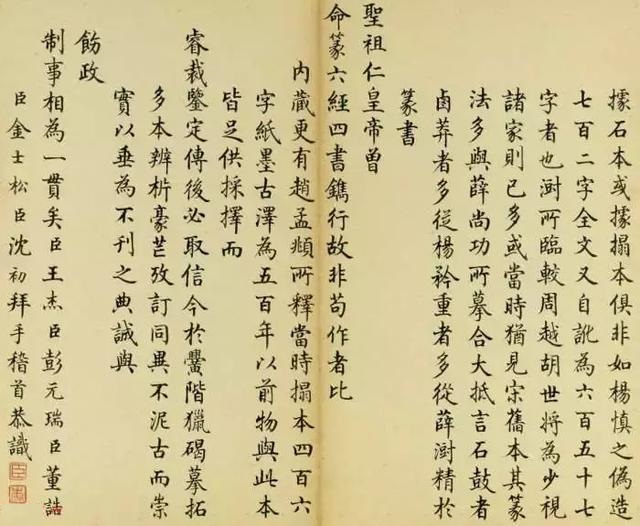 據石本或據搨本俱非如楊慎之偽造
七百二字全文又自訛為六百五十七
字者也澍所臨較周越胡世將為少視
諸家則已多或當時猶見宗舊本其篆
法多與薛尚功所摹合大抵言石鼓者
鹵莽者多從楊矜重者多從薛澍精於
篆書
聖祖仁皇帝曽
命篆六經四書鐫行故非苟作者比
內藏更有趙孟頫所釋當時搨本四百六
字紙墨古澤為五百年以前物與此本
皆足供採擇而
睿裁鑒定傳後必取信今於黌階獵碣摹拓
多本辨析豪芒攷訂同異不泥古而崇
實以垂為不刊之典誠與
飭政
制事相為一貫矣臣王杰臣彭元瑞臣董誥
臣金士松臣沈初拜手稽首恭識